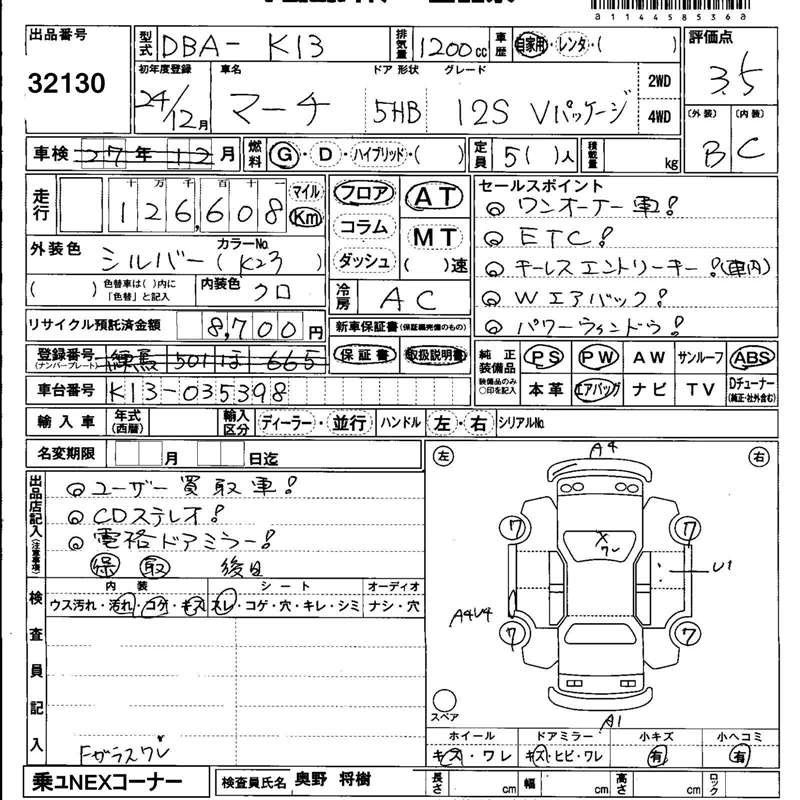 a114458536a
出品番号
32130
型式 DBA- K13
排気量 1200cc
車歴 自家用・レンタ・( )
評価点
3.5
初年度登録 24/12月
車名 マーチ
ドア 形状 5HB
グレード 12S Vパッケージ
2WD
4WD
〔外装〕 B
〔内装〕 C
車検 27年12月
燃料 G・D・ハイブリッド・( )
定員 5( )人
積載量 kg
走行 十万千百十一
126,608
マイル
Km
フロア
コラム
ダッシュ
AT
MT
( )速
外装色 シルバー
カラーNo. (K23)
( ) 色替車は( )内に「色替」と記入
内装色 クロ
冷房 AC
セールスポイント
◎ ワンオーナー車!
◎ ETC!
◎ キーレスエントリーキー!(車内)
◎ Wエアバック!
◎ パワーウィンドウ!
リサイクル預託済金額 8,700円
新車保証書(保証継続完備のもの)
保証書 取扱説明書
登録番号(ナンバープレート) 練馬 501 ほ 665
車台番号 K13-035398
純正装備品
装備品のみ○印を記入
PS PW AW サンルーフ ABS
本革 エアバッグ ナビ TV Dチューナー(純正・社外含む)
輸入車 年式(西暦)
輸入区分 ディーラー・並行
ハンドル 左・右
シリアルNo.
名変期限 月 日迄
出品店記入(注意事項)
◎ ユーザー買取車!
◎ CDステレオ!
◎ 電格ドアミラー!
保 取 後日
左
右
A4
7
7
X
ワレ
U1
A4U4
7
7
スペア
A1
検査員記入
内装
ウス汚れ・汚れ・コゲ・キズ
シート
スレ・コゲ・穴・キレ・シミ
オーディオ
ナシ・穴
Fガラスワレ
ホイール
キズ・ワレ
ドアミラー
キズ・ヒビ・ワレ
小キズ
有
小ヘコミ
有
乗ユNEXコーナー
検査員氏名 奥野 将樹
長さ cm
幅 cm
高さ cm
ロック